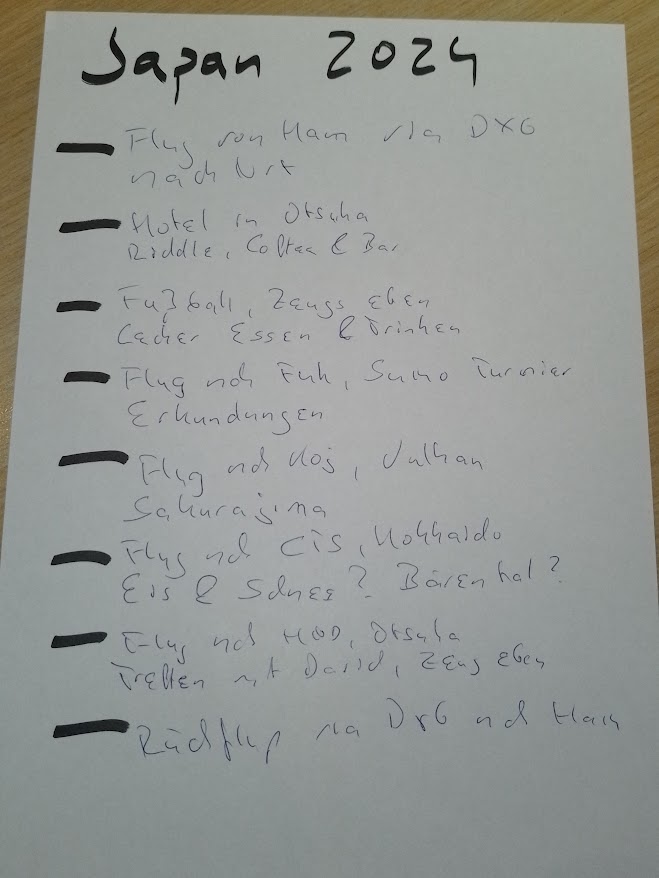 Japan 2024
Flug von Ham via DXB
nach Nrt
Hotel in Otsuka
Riddle, Coffee & Bar
Fußball, Zeugs eben
Lecker Essen & Trinken
Flug nch Fuk, Sumo Turnier
Erkundungen
Flug nch Koj, Vulkan
Sakurajima
Flug nch CTS, Hokkaido
Eis & Schnee? Bären hal?
Flug nch HND, Otsuka
Treffen mit David, Zeug eben
Rückflug via DXB nch Ham